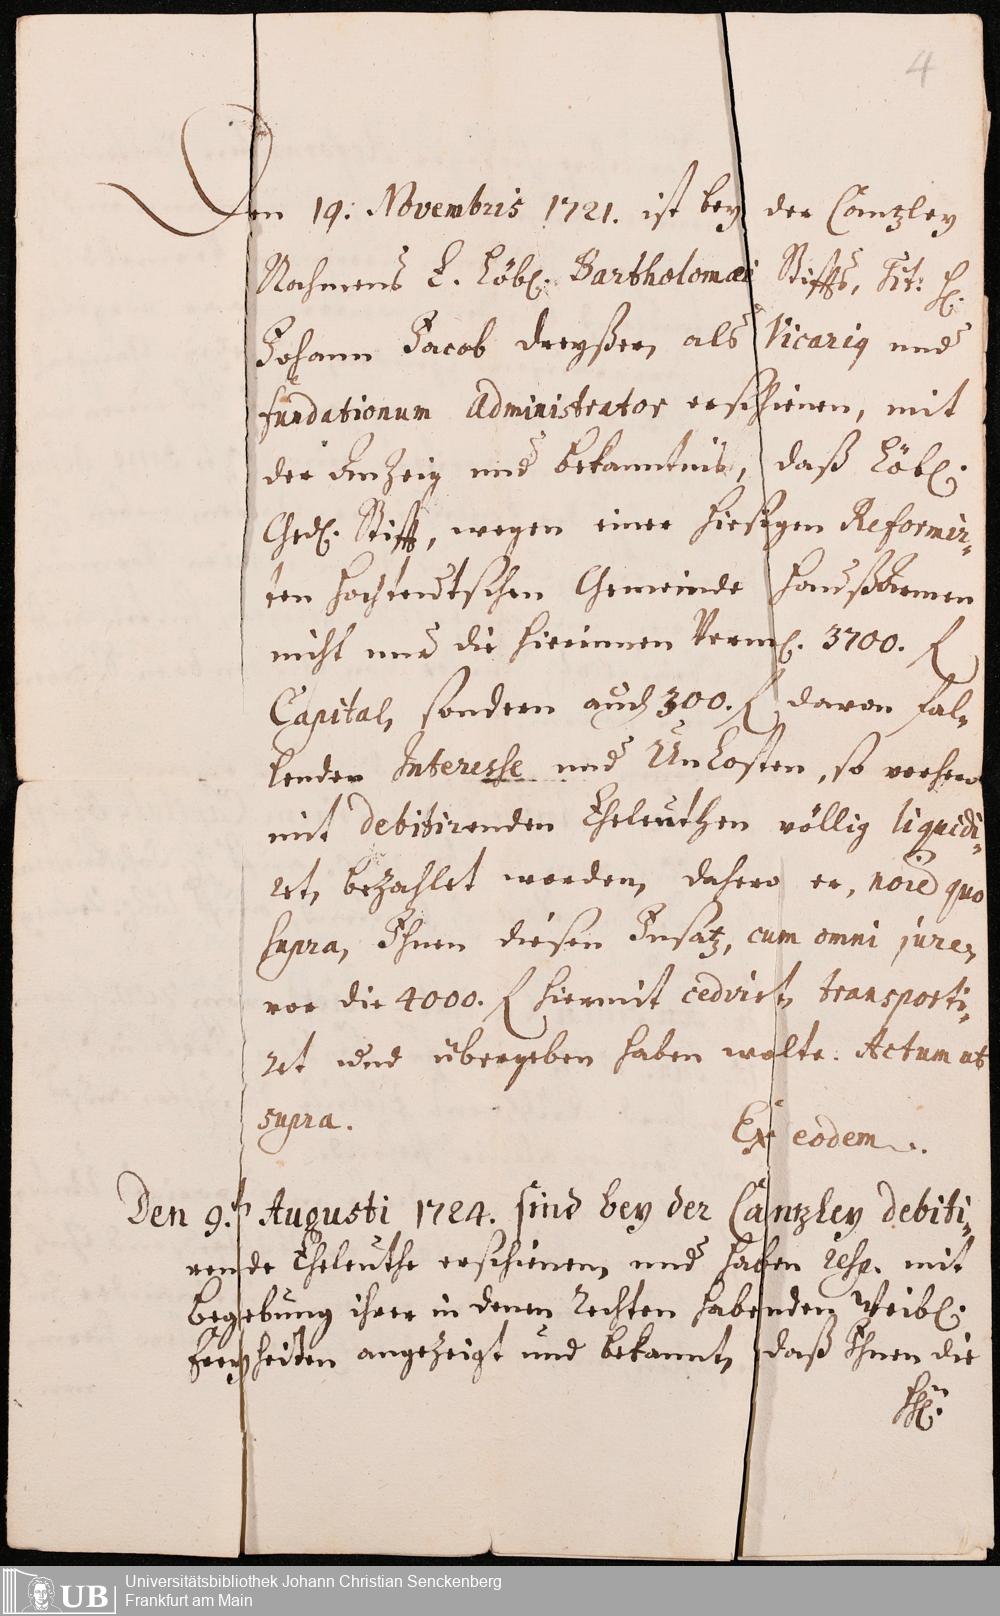 4
Den 19. Novembris 1721. ist bey der Cantzley
Nahmens E. Löbl. Bartholomæi Stiffts, Tit: H.
Johann Jacob Dreyßer, als Vicariq und
fundationum Administrator erschienen, mit
der Anzeig und bekanntnis, daß Löbl.
Ged. Stifft, wegen einer hiesigen Reformir-
ten Hochteutschen Gemeinde Haußarmen
nicht nur die hierinnen Verml. 3700. f
Capital, sondern auch 300. f davon fal-
lender Interesse und Unkosten, so vorhero
mit debitirenden Eheleuthen völlig liquidi-
ret, bezahlet worden, dahero er, noie quo
supra, Ihnen diesen Insatz, cum omni jure,
vor die 4000. f hiermit cedirt, transporti-
ret und übergeben haben wolte. Actum ut
supra.
Ex eodem.
Den 9.t Augusti 1724. sind bey der Cantzley debiti-
rende Eheleuthe erschienen, und haben resp. mit
begebung ihrer in denen Rechten habenden Weibl.
Freyheiten angezeigt und bekannt, daß Ihnen die
UB
Universitätsbibliothek Johann Christian Senckenberg
Frankfurt am Main